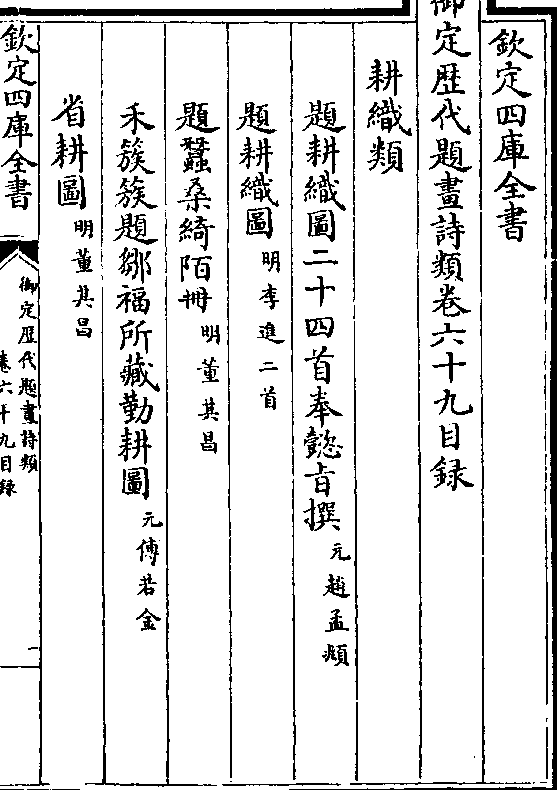 欽定四庫全書
御定歴代題畫詩類卷六十九目録
耕織類
題耕織圖二十四首奉懿㫖撰 元趙孟頫
題耕織圖 明李進二首
題蠶桑綺陌冊 明董其昌
禾簇簇題鄒福所藏勤耕圖 元傅若金
省耕圖 明董其昌
欽定四庫全書
御定歴代題畫詩類
卷六十九目録
一